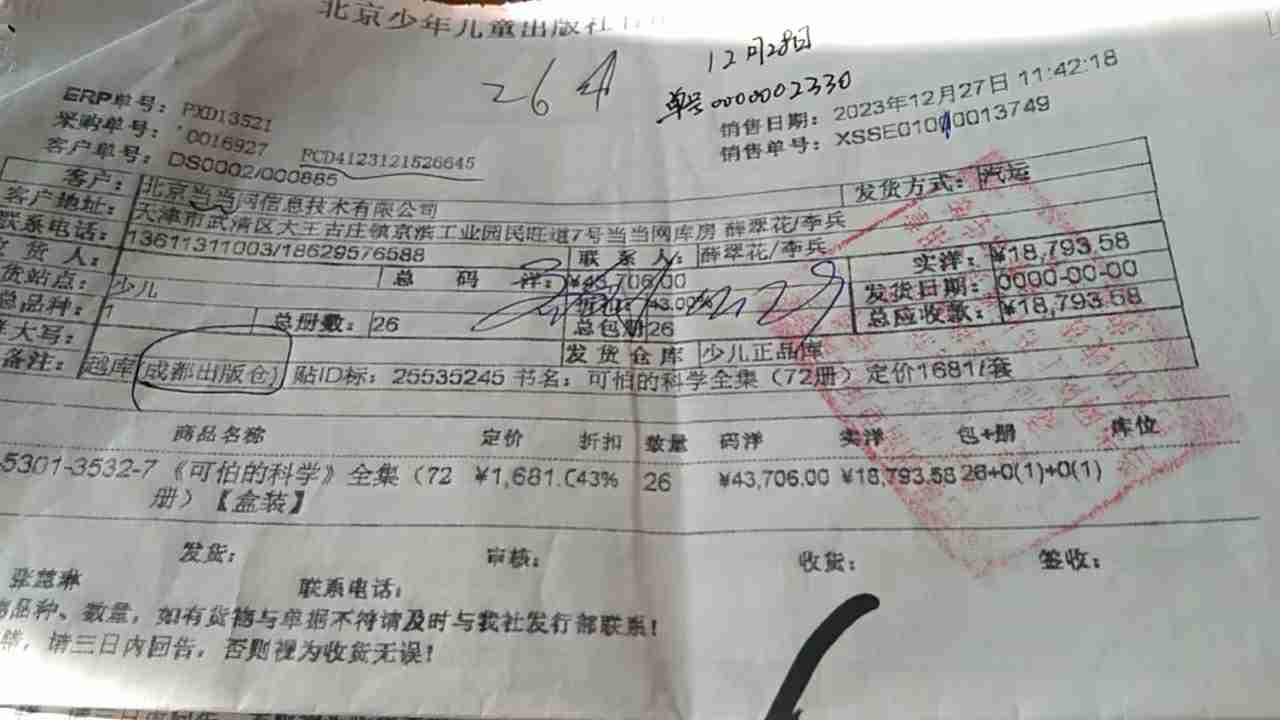 北京少年儿童出版社
12月28日
26件
单号0000002330
ERP单号: PXD13521
销售日期: 2023年12月27日 11:42:18
采购单号: 0016927 PCD4123121526645
销售单号: XSSE01000013749
客户单号: DS0002/000885
客户: 北京当当网信息技术有限公司 发货方式: 汽运
客户地址: 天津市武清区大王古庄镇京滨工业园民旺道7号当当网库房 薛翠花/李兵
联系电话: 13611311003/18629576588 联系人: 薛翠花/李兵 实洋: ¥18,793.58
货人: 总码洋: ¥43,706.00 发货日期: 0000-00-00
货站点: 少儿 43.00% 总应收款: ¥18,793.58
总品种: 1 总册数: 26 总包册 26
大写: 发货仓库 少儿正品库
备注: 越库(成都出版仓) 贴ID标: 25535245 书名: 可怕的科学全集(72册) 定价1681/套
商品名称 定价 折扣 数量 码洋 实洋 包+册 库位
5301-3532-7 《可怕的科学》全集(72 ¥1,681.0 43% 26 ¥43,706.00 ¥18,793.58 26+0(1)+0(1)
册)【盒装】
发货: 审核: 收货: 签收:
张慧琳 联系电话:
品种、数量,如有货物与单据不符请及时与我社发行部联系!
请三日内回告,否则视为收货无误!